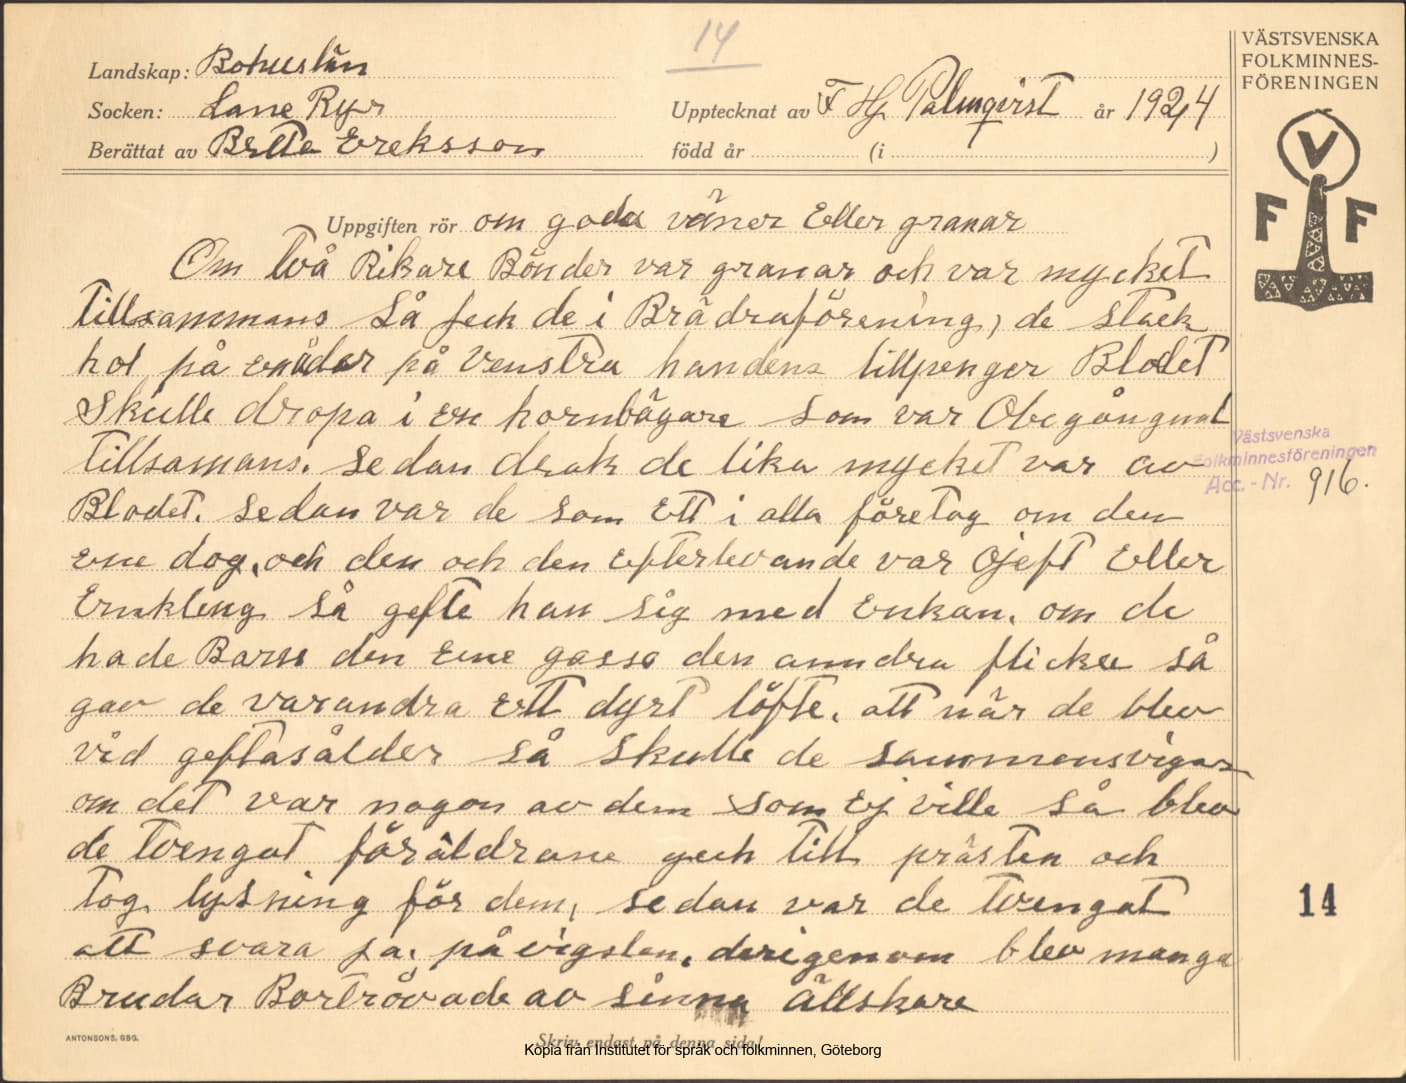 14
VÄSTSVENSKA
FOLKMINNES-
FÖRENINGEN
Landskap: Bohuslän
Socken: Lane Ryr
Upptecknat av F Hj Palmqvist år 1924
Berättat av Britta Ereksson
född år (i )
VFF
Uppgiften rör om goda väner Eller granar
Om två Rikare Bönder var granar och var mycket
tillsammans Så feck de i Brädraförening, de stack
hol på på venstra handens lillpenger Blodet
Skulle dropa i en hornbägare som var Obegångnat
tillsamans. sedan drak de lika mycket var av
Blodet. sedan var de som Ett i alla företag om den
ene dog, och den och den Efterlevande var Ojeft Eller
Enkleng så gefte han sig med Enkan. om de
hade Barn den Ene gosse den anndra flicka så
gav de varandra Ett dyrt löfte. att när de blev
vid geftasålder så skulle de sammensvigas
om det var nogon av dem som Ej ville så blev
de tvengat föräldrane geck till prästen och
tog lysning för dem, sedan var de tvengat
att svara ja. på vigslen. derigenom blev manga
Brudar Bortrövade av sinna Älskare
Västsvenska
Folkminnesföreningen
Acc. - Nr. 916.
14
ANTONSONS, GBG.
Skriv endast på denna sida!
Kopia från Institutet för språk och folkminnen, Göteborg